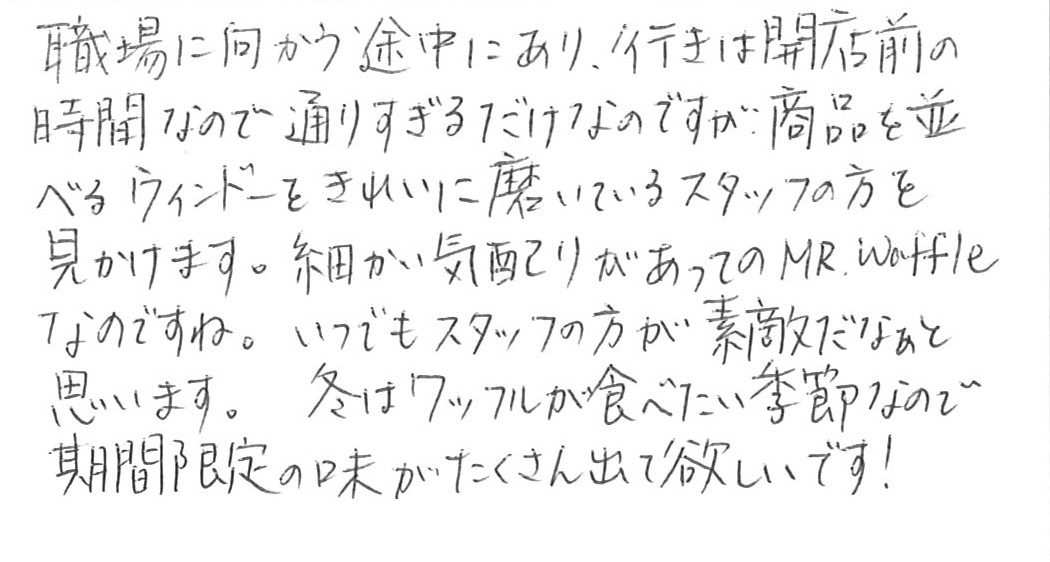 職場に向かう途中にあり、行きは開店前の
時間なので通りすぎるだけなのですが、商品を並
べるウィンドーをきれいに磨いているスタッフの方を
見かけます。細かい気配りがあってのMR.Waffle
なのですね。いつでもスタッフの方が素敵だなぁと
思います。 冬はワッフルが食べたい季節なので
期間限定の味がたくさん出て欲しいです!